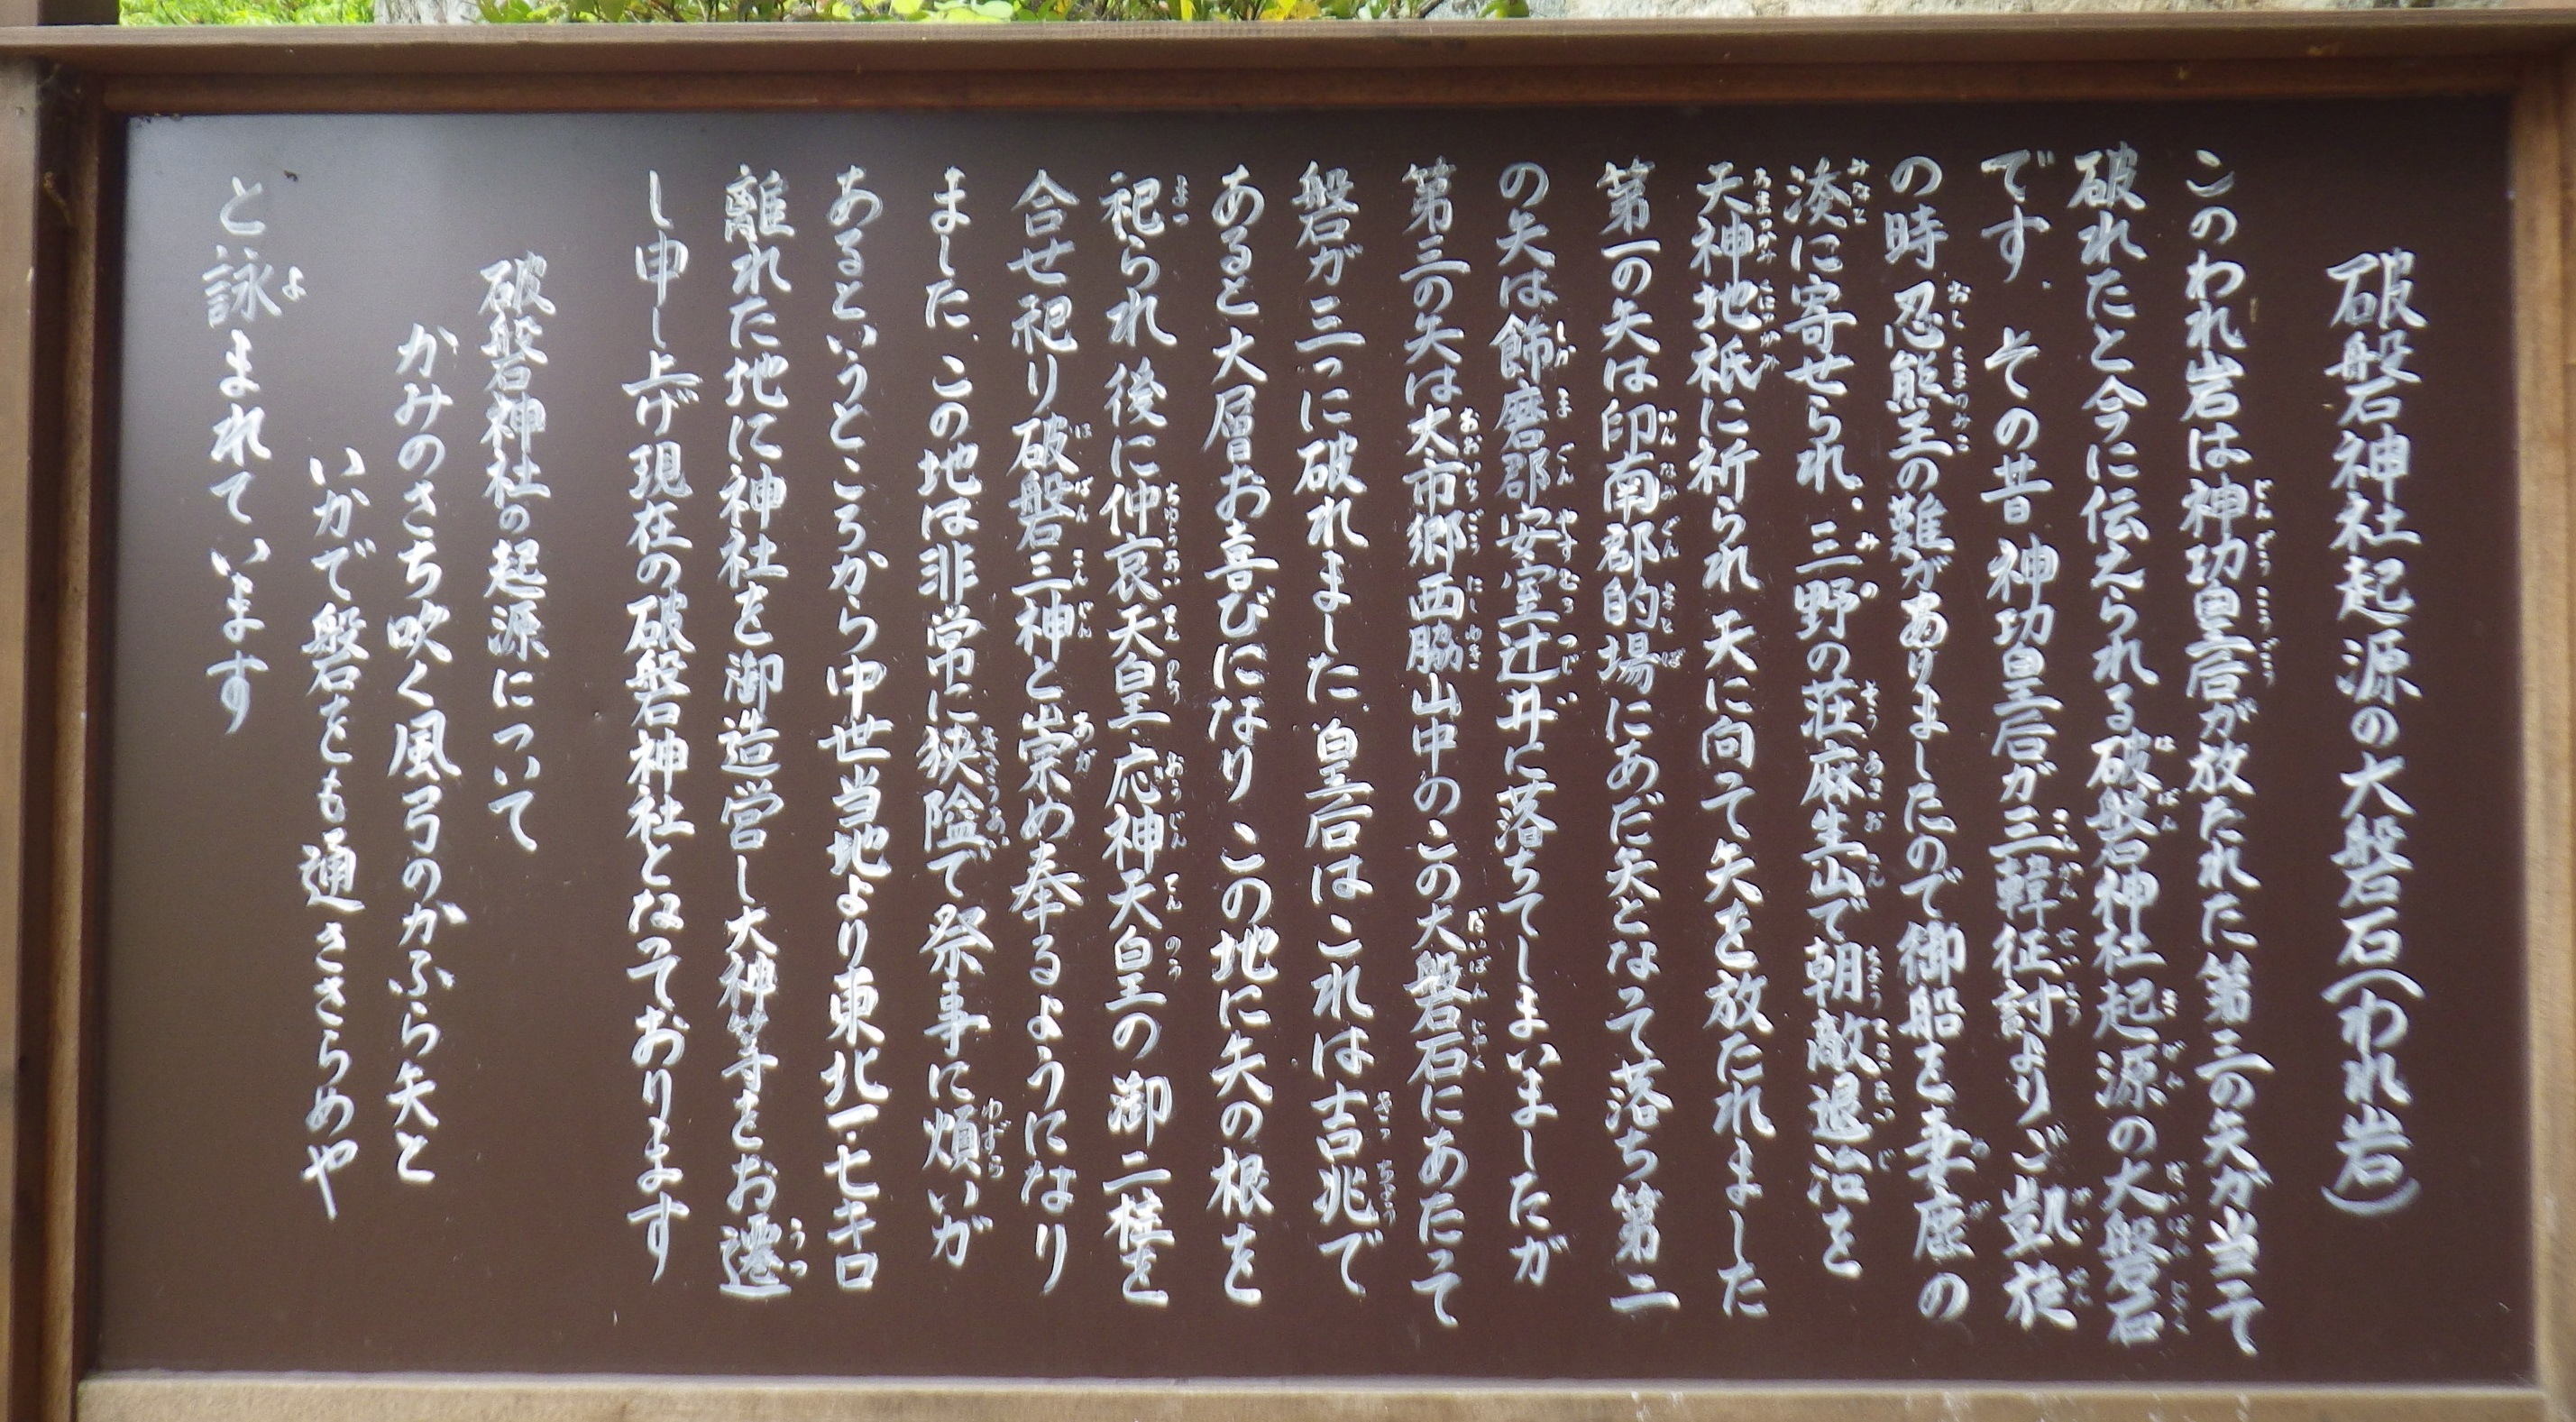 破磐神社起源の大磐石(われ岩)
このわれ岩は神功皇后が放たれた第三の矢が当て
破れたと今に伝えられる破磐神社起源の大磐石
です. その昔 神功皇后が三韓征討よりご凱旋
の時 忍熊王の難がありましたので御船を妻鹿の
湊に寄せられ. 三野の荘麻生山で朝敵退治を
天神地祇に祈られ 天に向て矢を放たれました
第一の矢は印南郡的場にあだ矢となって落ち第二
の矢は飾磨郡安室辻井に落ちてしまいましたが
第三の矢は太市郷西脇山中のこの大磐石にあたって
磐が三っに破れました.皇后はこれは吉兆で
あると大層お喜びになり この地に矢の根を
祀られ 後に仲哀天皇.応神天皇の御二柱を
合せ祀り破磐三神と崇め奉るようになり
ました. この地は非常に狭隘で祭事に煩いが
あるというところから中世当地より東北一.七キロ
離れた地に神社を御造営し大神等をお遷
し申し上げ現在の破磐神社となっております
破磐神社の起源について
かみのさち吹く風弓のかぶら矢と
いかで磐をも通さざらめや
と詠まれています